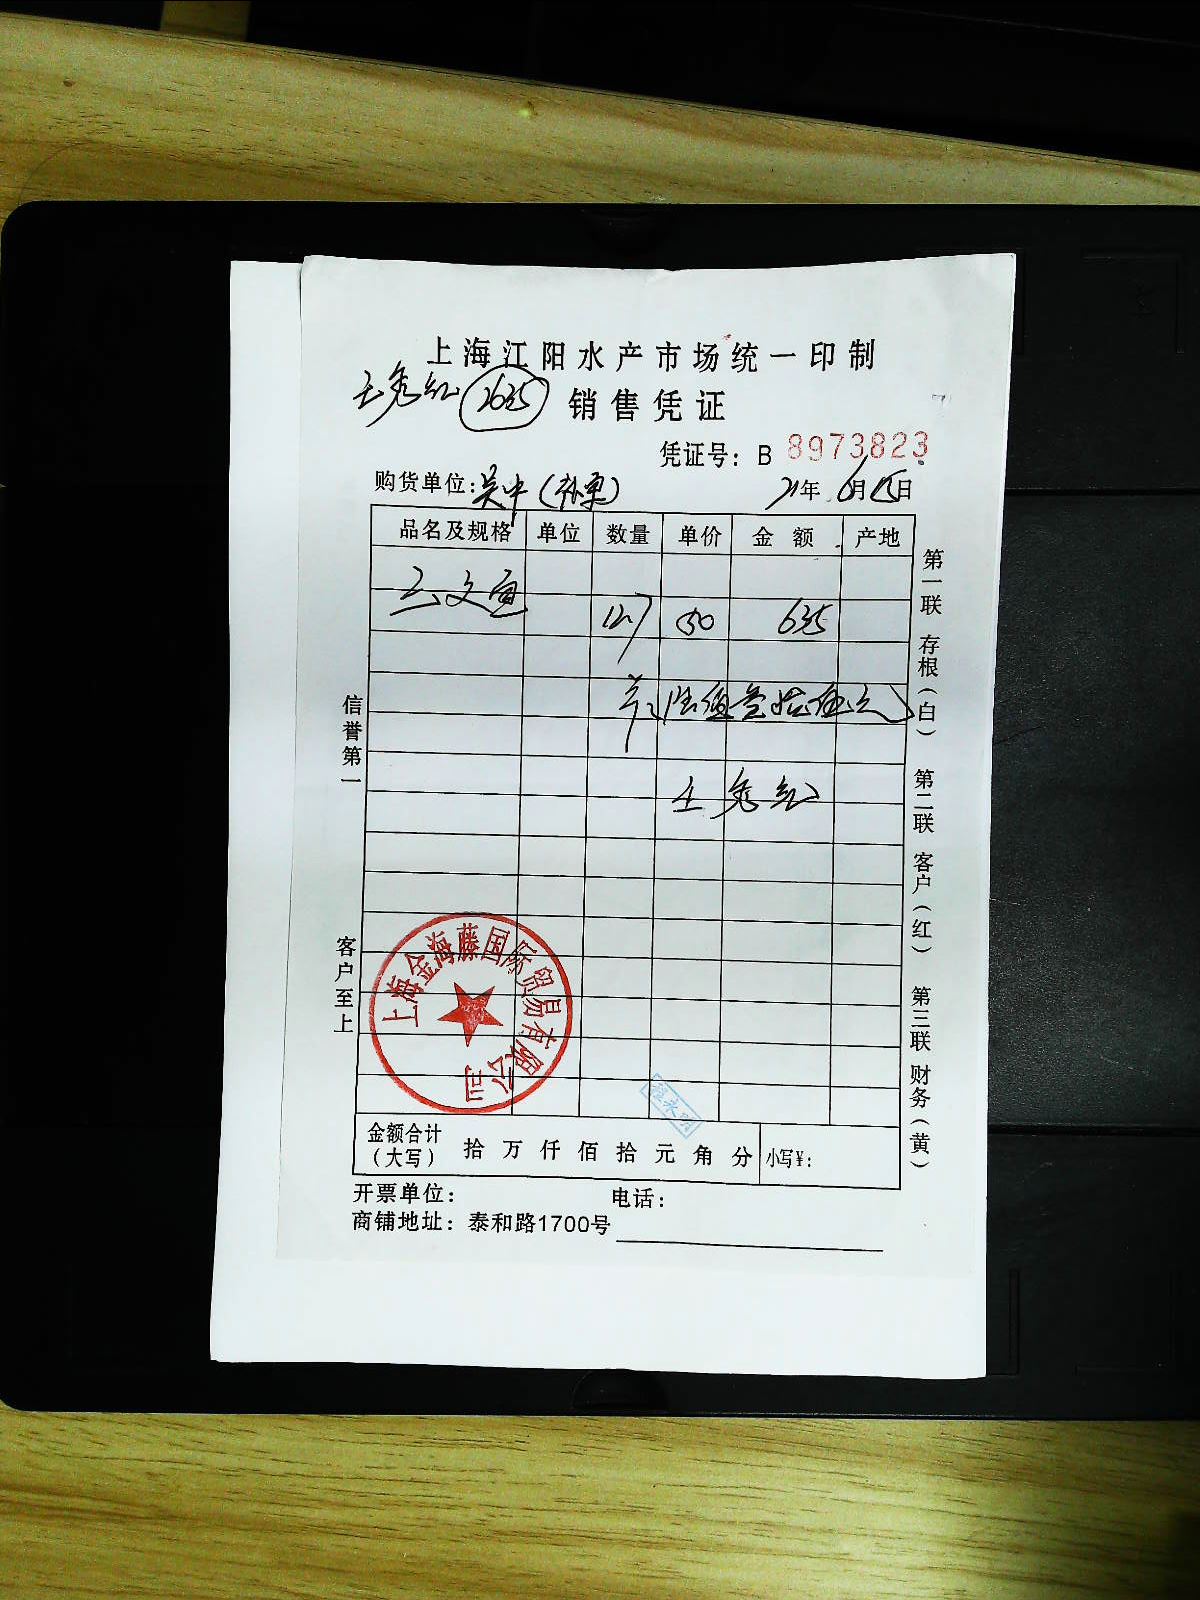 上海江阳水产市场统一印制
王秀红 2635 销售凭证
凭证号：B 8973823
购货单位：吴中（补单） 21年6月15日
品名及规格 单位 数量 单价 金额 产地
三文鱼 12.7 50 635
共：陆佰叁拾伍元
王秀红
信誉第一
客户至上
第一联 存根（白） 第二联 客户（红） 第三联 财务（黄）
上海金海藤国际贸易有限公司
金额合计（大写） 拾 万 仟 佰 拾 元 角 分 小写¥：
开票单位： 电话：
商铺地址：泰和路1700号